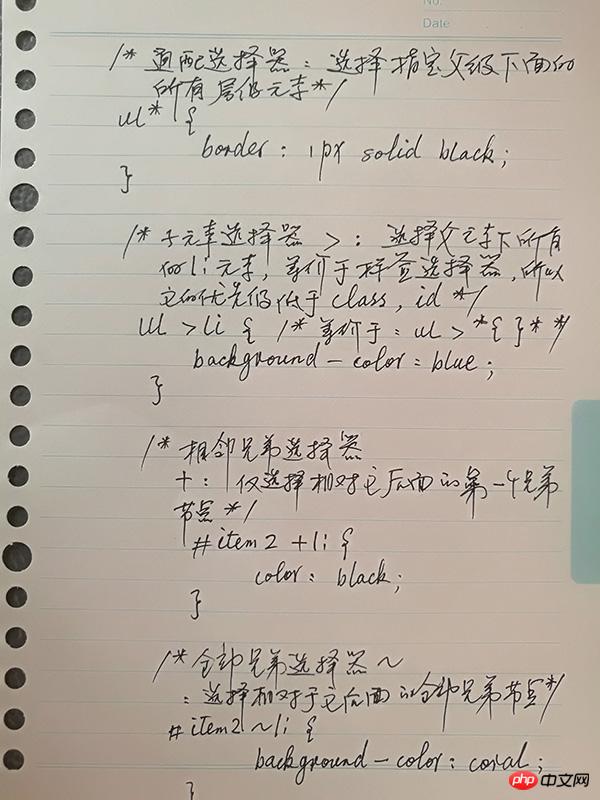 No.
Date
/* 通配选择器：选择指定父级下面的
所有层级元素*/
ul* {
border : 1px solid black;
}
/* 子元素选择器 >： 选择父元素下所有
的li元素, 等价于标签选择器, 所以
它的优先级低于class, id */
ul > li { /* 等价于：ul > *{ }* */
background-color : blue;
}
/* 相邻兄弟选择器
+： 仅选择相对它后面的第一个兄弟
节点 */
#item2 + li {
color : black;
}
/* 全部兄弟选择器 ~
：选择相对于它后面的全部兄弟节点*/
#item2 ~ li {
background-color : coral;
}
php 中文网